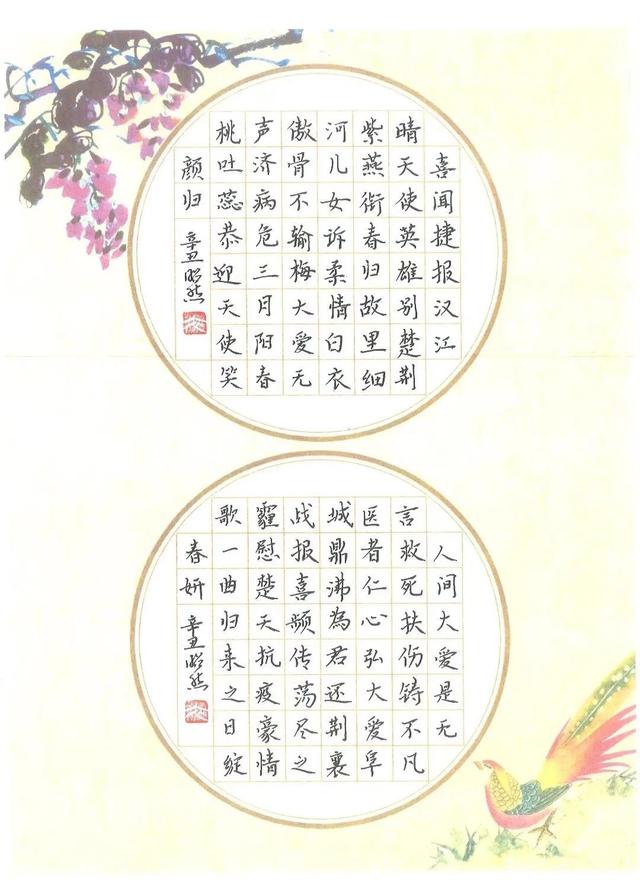 喜闻捷报汉江
晴天使英雄别楚荆
紫燕衔春归故里细
河儿女诉柔情白衣
傲骨不输梅大爱无
声济病危三月阳春
桃吐蕊恭迎天使笑
颜归 辛丑昭然
人间大爱是无
言救死扶伤铸不凡
医者仁心弘大爱阜
城鼎沸為君还荆襄
战报喜频传荡尽之
霾慰楚天抗疫豪情
歌一曲归来之日绽
春妍 辛丑昭然